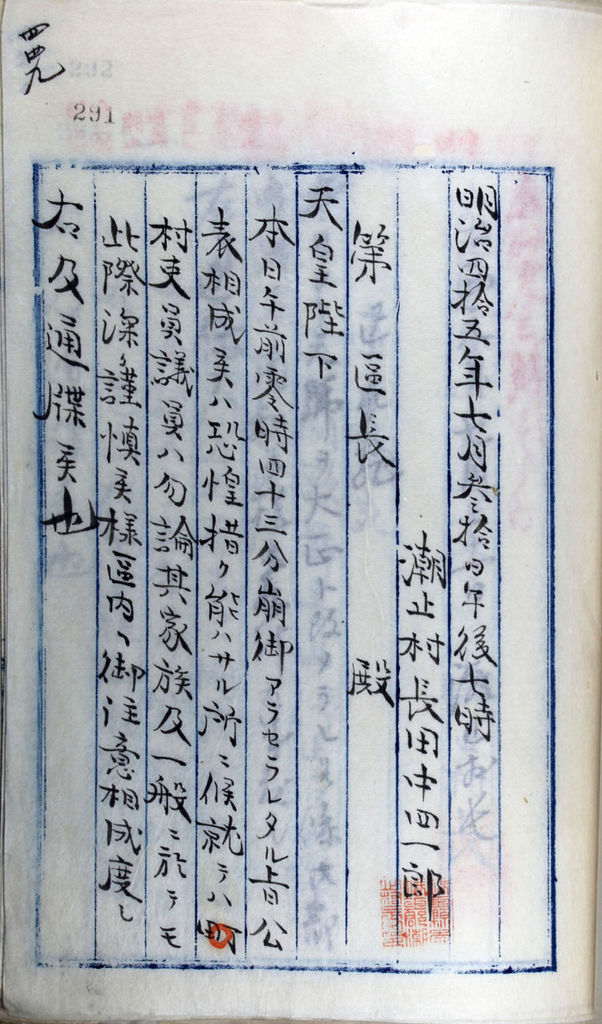 四四九
291
明治四拾五年七月叁拾日午後七時
潮止村長田中四一郎
第 區長 殿
天皇陛下
本日午前零時四十三分崩御アラセラレタル旨公
表相成候ハ恐惶措ク能ハサル所ニ候就テハ町
村吏員議員ハ勿論其家族及一般ニ於テモ
此際深ク謹慎候様區内ヘ御注意相成度シ
右及通牒候也